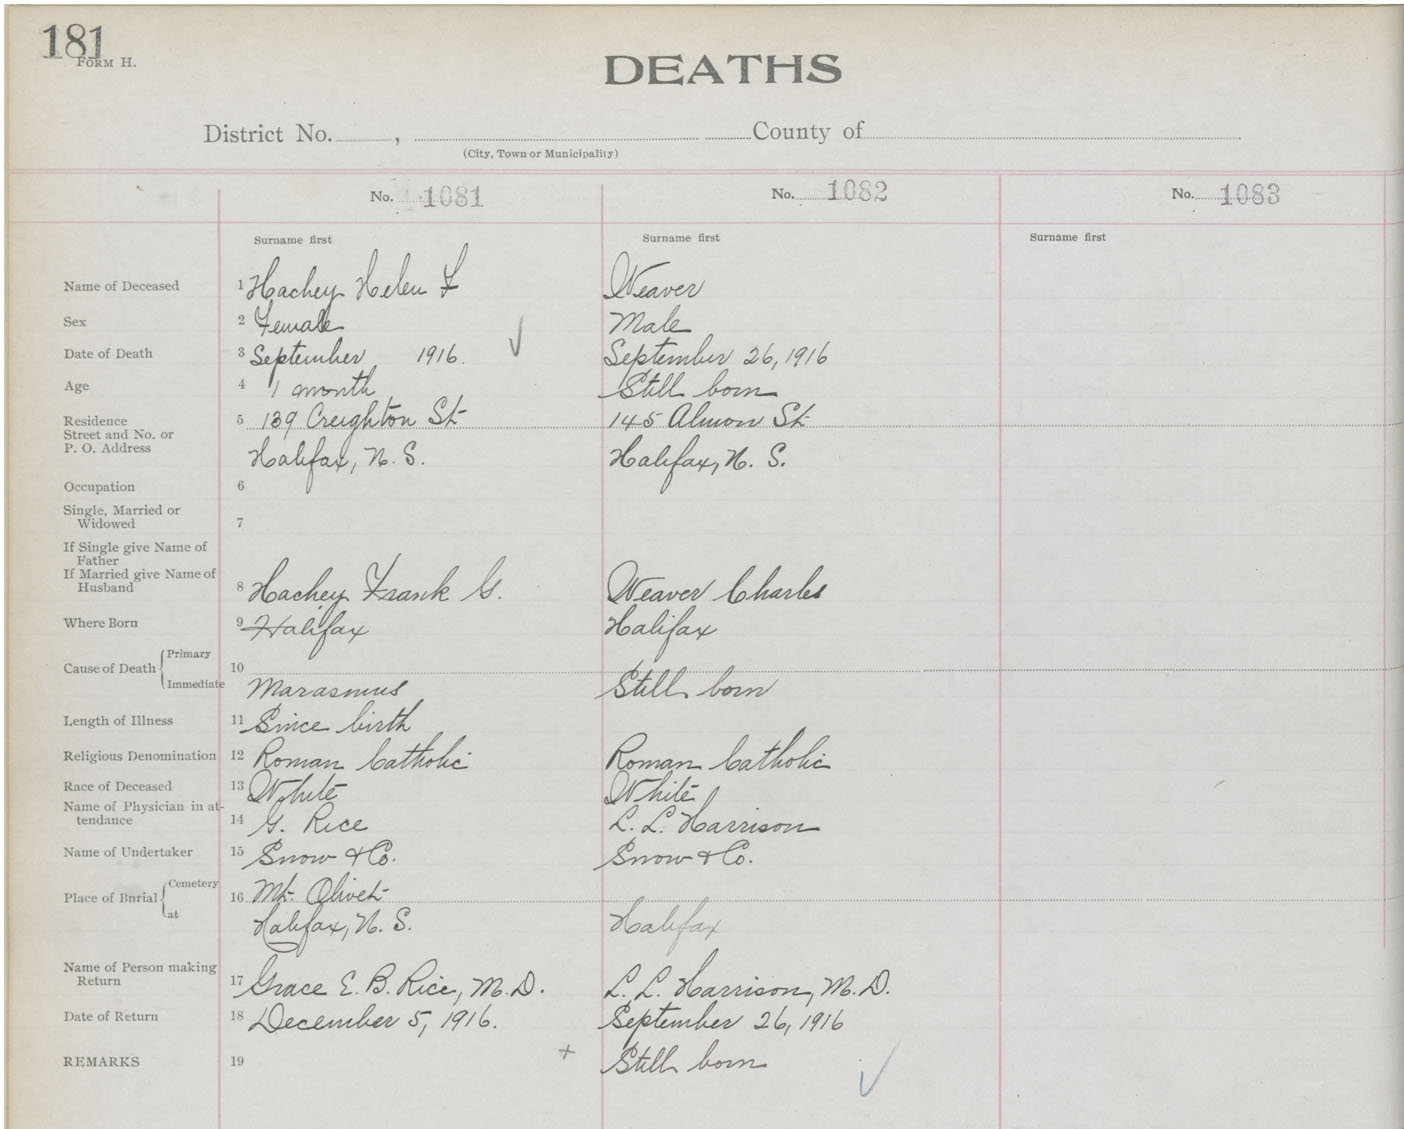 181
FORM H.
DEATHS
District No. , County of
(City, Town or Municipality)
No. 1081 No. 1082 No. 1083
Surname first Surname first Surname first
Name of Deceased 1 Hachey Helen F Weaver
Sex 2 Female Male
Date of Death 3 September 1916. September 26, 1916
Age 4 1 month Still born
Residence 5 139 Creighton St 145 Almon St
Street and No. or
P. O. Address Halifax, N. S. Halifax, N. S.
Occupation 6
Single, Married or
Widowed 7
If Single give Name of
Father
If Married give Name of
Husband 8 Hachey Frank G. Weaver Charles
Where Born 9 Halifax Halifax
Cause of Death Primary 10
Immediate Marasmus Still born
Length of Illness 11 Since birth
Religious Denomination 12 Roman Catholic Roman Catholic
Race of Deceased 13 White White
Name of Physician in at-
tendance 14 G. Rice L. L. Harrison
Name of Undertaker 15 Snow & Co. Snow & Co.
Place of Burial Cemetery 16 Mt. Olivet
at Halifax, N. S. Halifax
Name of Person making
Return 17 Grace E. B. Rice, M. D. L. L. Harrison, M. D.
Date of Return 18 December 5, 1916. September 26, 1916
REMARKS 19 + Still born